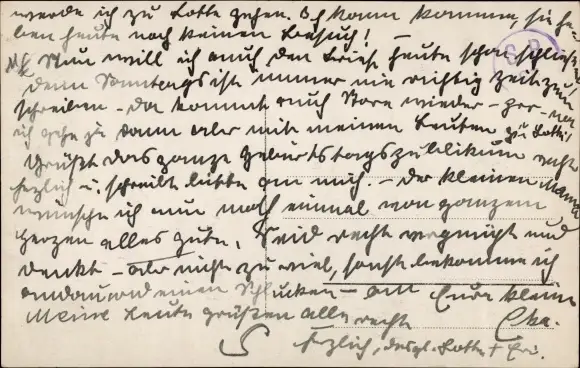 werde ich zu Lotte gehen. Ich kann kommen, sie ha-
ben heute noch keinen Besuch! —
Nun will ich auch den Brief heute schon schließen
denn Sonntags ist immer nie richtig Zeit zum
schreiben - da kommt auch Nora wieder -
ich gehe zu dann aber mit meinen Leuten zu Lotte!
Grüßt das ganze Geburtstagspublikum recht
herzlich u. schreibt bitte an mich. - Der kleinen Mama
wünsche ich nun noch einmal von ganzem
Herzen alles Gute. Seid recht vergnügt und
denkt - aber nicht zu viel, sonst bekomme ich
andauernd einen Schlucken - an Eure kleine
Meine Leute grüßen alle recht
herzlich, desgl. Lotte +